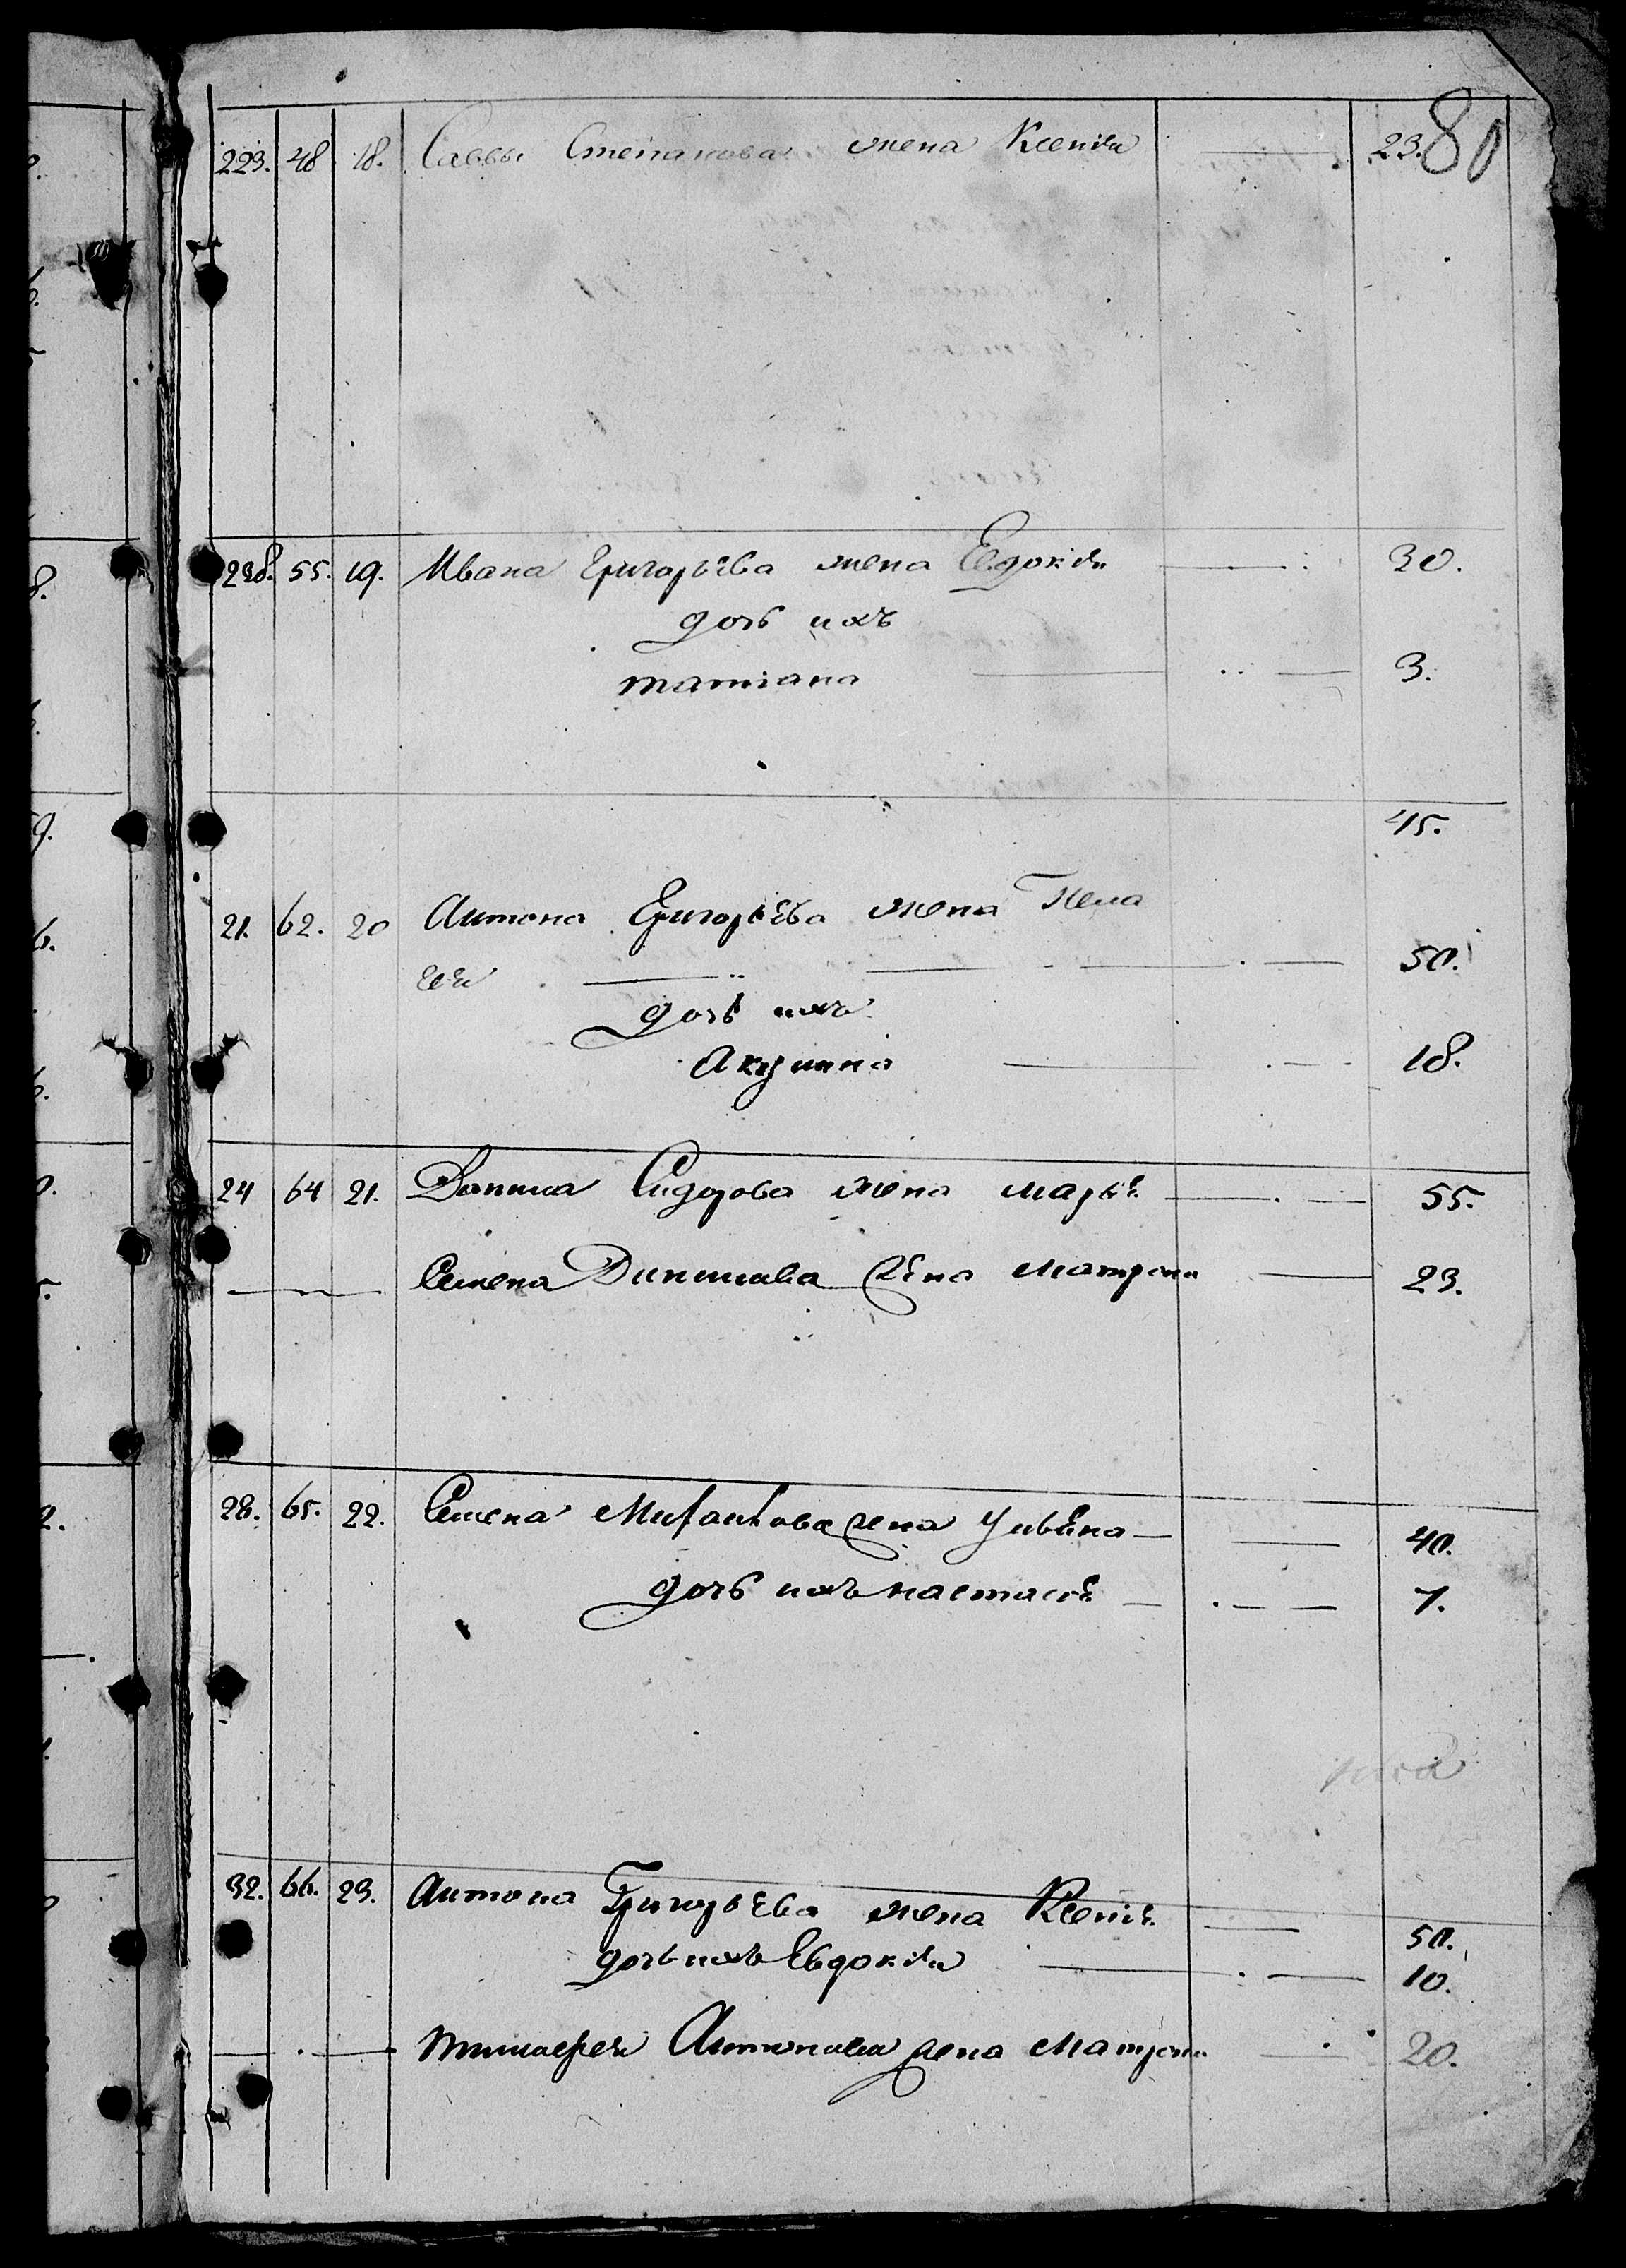 80
223. 48 18. Саввы Степанова жена Ксенія 23.
238. 55. 19. Ивана Григорьева жена Евдокія 30.
дочь ихъ
татіана 3.
45.
21. 62. 20 Антона Григорьева жена
50.
дочь ихъ
Акулина 18.
24 64 21. Данила Сидорова жена марья 55.
Семена Данилова жена Матрена 23.
28. 65. 22. Семена Михайлова жена Ульяна 40.
дочь ихъ настасья 7.
32. 66. 23. Антона Григорьева жена Ксенія 50.
дочь ихъ Евдокія 10.
тимофея Антонова жена Матрена 20.